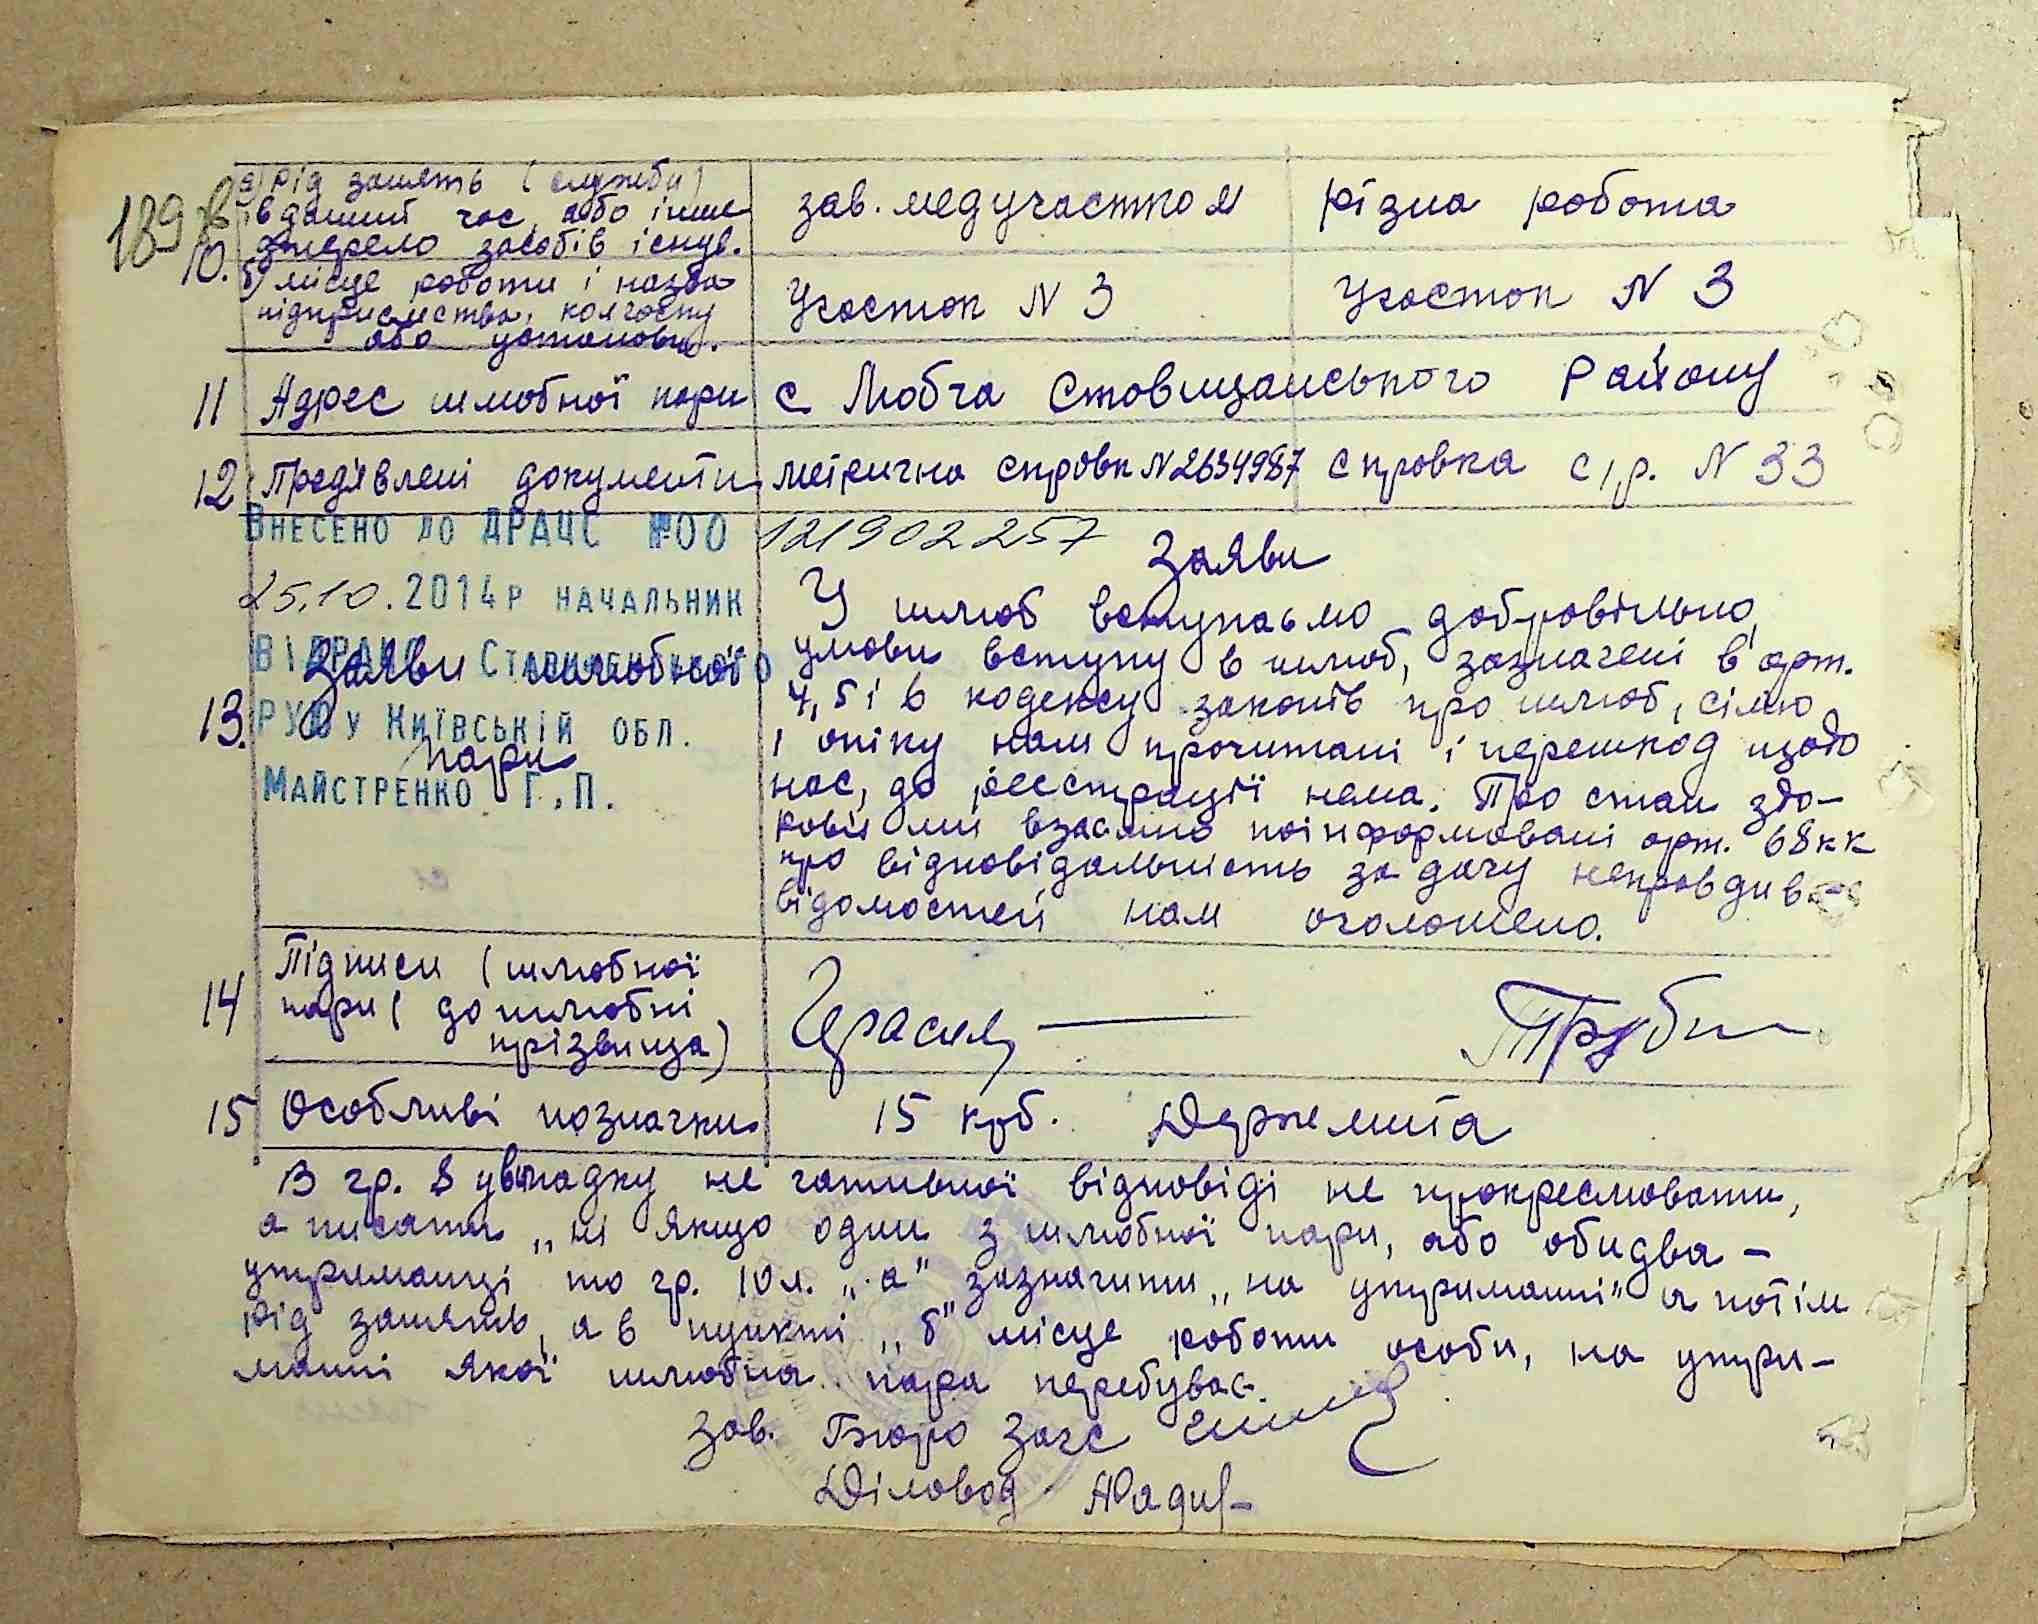 189 зв
а) Рід занять (служби)
в даний час, або інше
джерело засобів існув.
зав. медучастком
різна робота
10.
б) місце роботи і назва
підприємства, колгоспу
або установи.
Участок N 3
Участок N 3
11 Адрес шлюбної пари
с Любча Ставищанського Району
12 Пред'явлені документи
метрична справк N 2634987
справка с/р. N 33
Внесено до ДРАЦС №00 121902257
25.10.2014р начальник
Ставищенського
РУЮ у Київській обл.
Майстренко Г.П.
13. Заяви шлюбної
пари
Заяви
У шлюб вступаємо добровільно,
умови вступу в шлюб, зазначені в арт.
4, 5 і 6 кодексу законів про шлюб, сімю
і опіку нам прочитані і перешкод щодо
нас, до реєстрації нема. Про стан здо-
ровія ми взаємно поінформовані арт. 68 кк
про відповідальність за дачу неправдив
відомостей нам оголошено.
14 Підписи (шлюбної
пари (до шлюбні
прізвища)
15 Особливі позначки
15 крб. Держмита
В гр. 8 увипадку не гативної відповіді не прокреслювати,
а писати „ні якщо один з шлюбної пари, або обидва -
утриманці то гр. 10 л. „а" зазначити „на утриманні" а потім
рід занять, а в пункті „б" місце роботи особи, на утри-
манні якої шлюбна пара перебуває.
Зав. Бюро Загс
Діловод